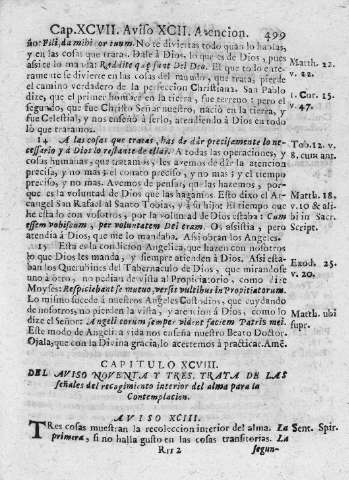 Cap. XCVII. Aviso XCII. Atencion. 499
ño: Fili, da mihi cor tuum. No te diviertas todo quando hablas,
y en las cosas que tratas. Dale à Dios, lo que es de Dios, pues
assi te lo manda: Reddite quæ sunt Dei Deo. El que todo ente- Matth. 22.
ramente se divierte en las cosas del mundo, que trata, pierde v. 22.
el camino verdadero de la perfeccion Christiana. San Pablo
dize, que el primer hombre en la tierra, fue terreno; pero el 1. Cor. 15.
segundo, que fue Christo Señor nuestro, naciò en la tierra, y v. 47.
fue Celestial, y nos enseñò à serlo, atendiendo à Dios en todo
lo que trataimos.
14 A las cosas que tratas, has de dàr precisamente lo ne- Tob. 12. v.
cessario y à Dios lo restante de ellas. A todas las operaciones, y 8. cum ant.
cosas humanas, que tratamos, les avemos de dàr la atencion
precisa, y no mas: el conato preciso, y no mas; y el tiempo
preciso, y no mas. Avemos de pensar, que las hazemos, por-
que es la voluntad de Dios que las hagamos. Esto dixo el Ar- Matth. 18.
cangel San Rafael al Santo Tobias, y à su hijo: El tiempo que v. 10 & ali-
he estado con vosotros, por la voluntad de Dios estaba: Cum bi in Sacr.
essem vobiscum, per voluntatem Dei eram. Os assistia, pero Script.
atendia à Dios, que me lo mandaba. Assi obran los Angeles.
15 Esta es la condicion Angelica, que hazen con nosotros
lo que Dios les manda, y siempre atienden à Dios. Assi esta- Exod. 25.
ban los Querubines del Tabernaculo de Dios, que mirandose v. 20.
uno à otro, no perdian de vista al Propiciatorio, como dize
Moyses: Respiciebant se mutuo, versis vultibus in Propitiatorium.
Lo mismo sucede à nuestros Angeles Custodios, que cuydando
de nosotros, no pierden la vista, y atencion à Dios, como lo Matth. ubi
dize el Señor: Angeli eorum semper vident faciem Patris mei. supr.
Este modo de Angelica vida nos enseña nuestro Beato Doctor.
Ojala, que con la Divina gracia, lo acertemos à practicar. Amē.
CAPITULO XCVIII.
DEL AVISO NOVENTA Y TRES. TRATA DE LAS
señales del recogimiento interior del alma para la
Contemplacion.
AVISO XCIII.
TRes cosas muestran la recoleccion interior del alma. La Sent. Spir.
primera, si no halla gusto en las cosas transitorias. La
Rrr 2 segun-